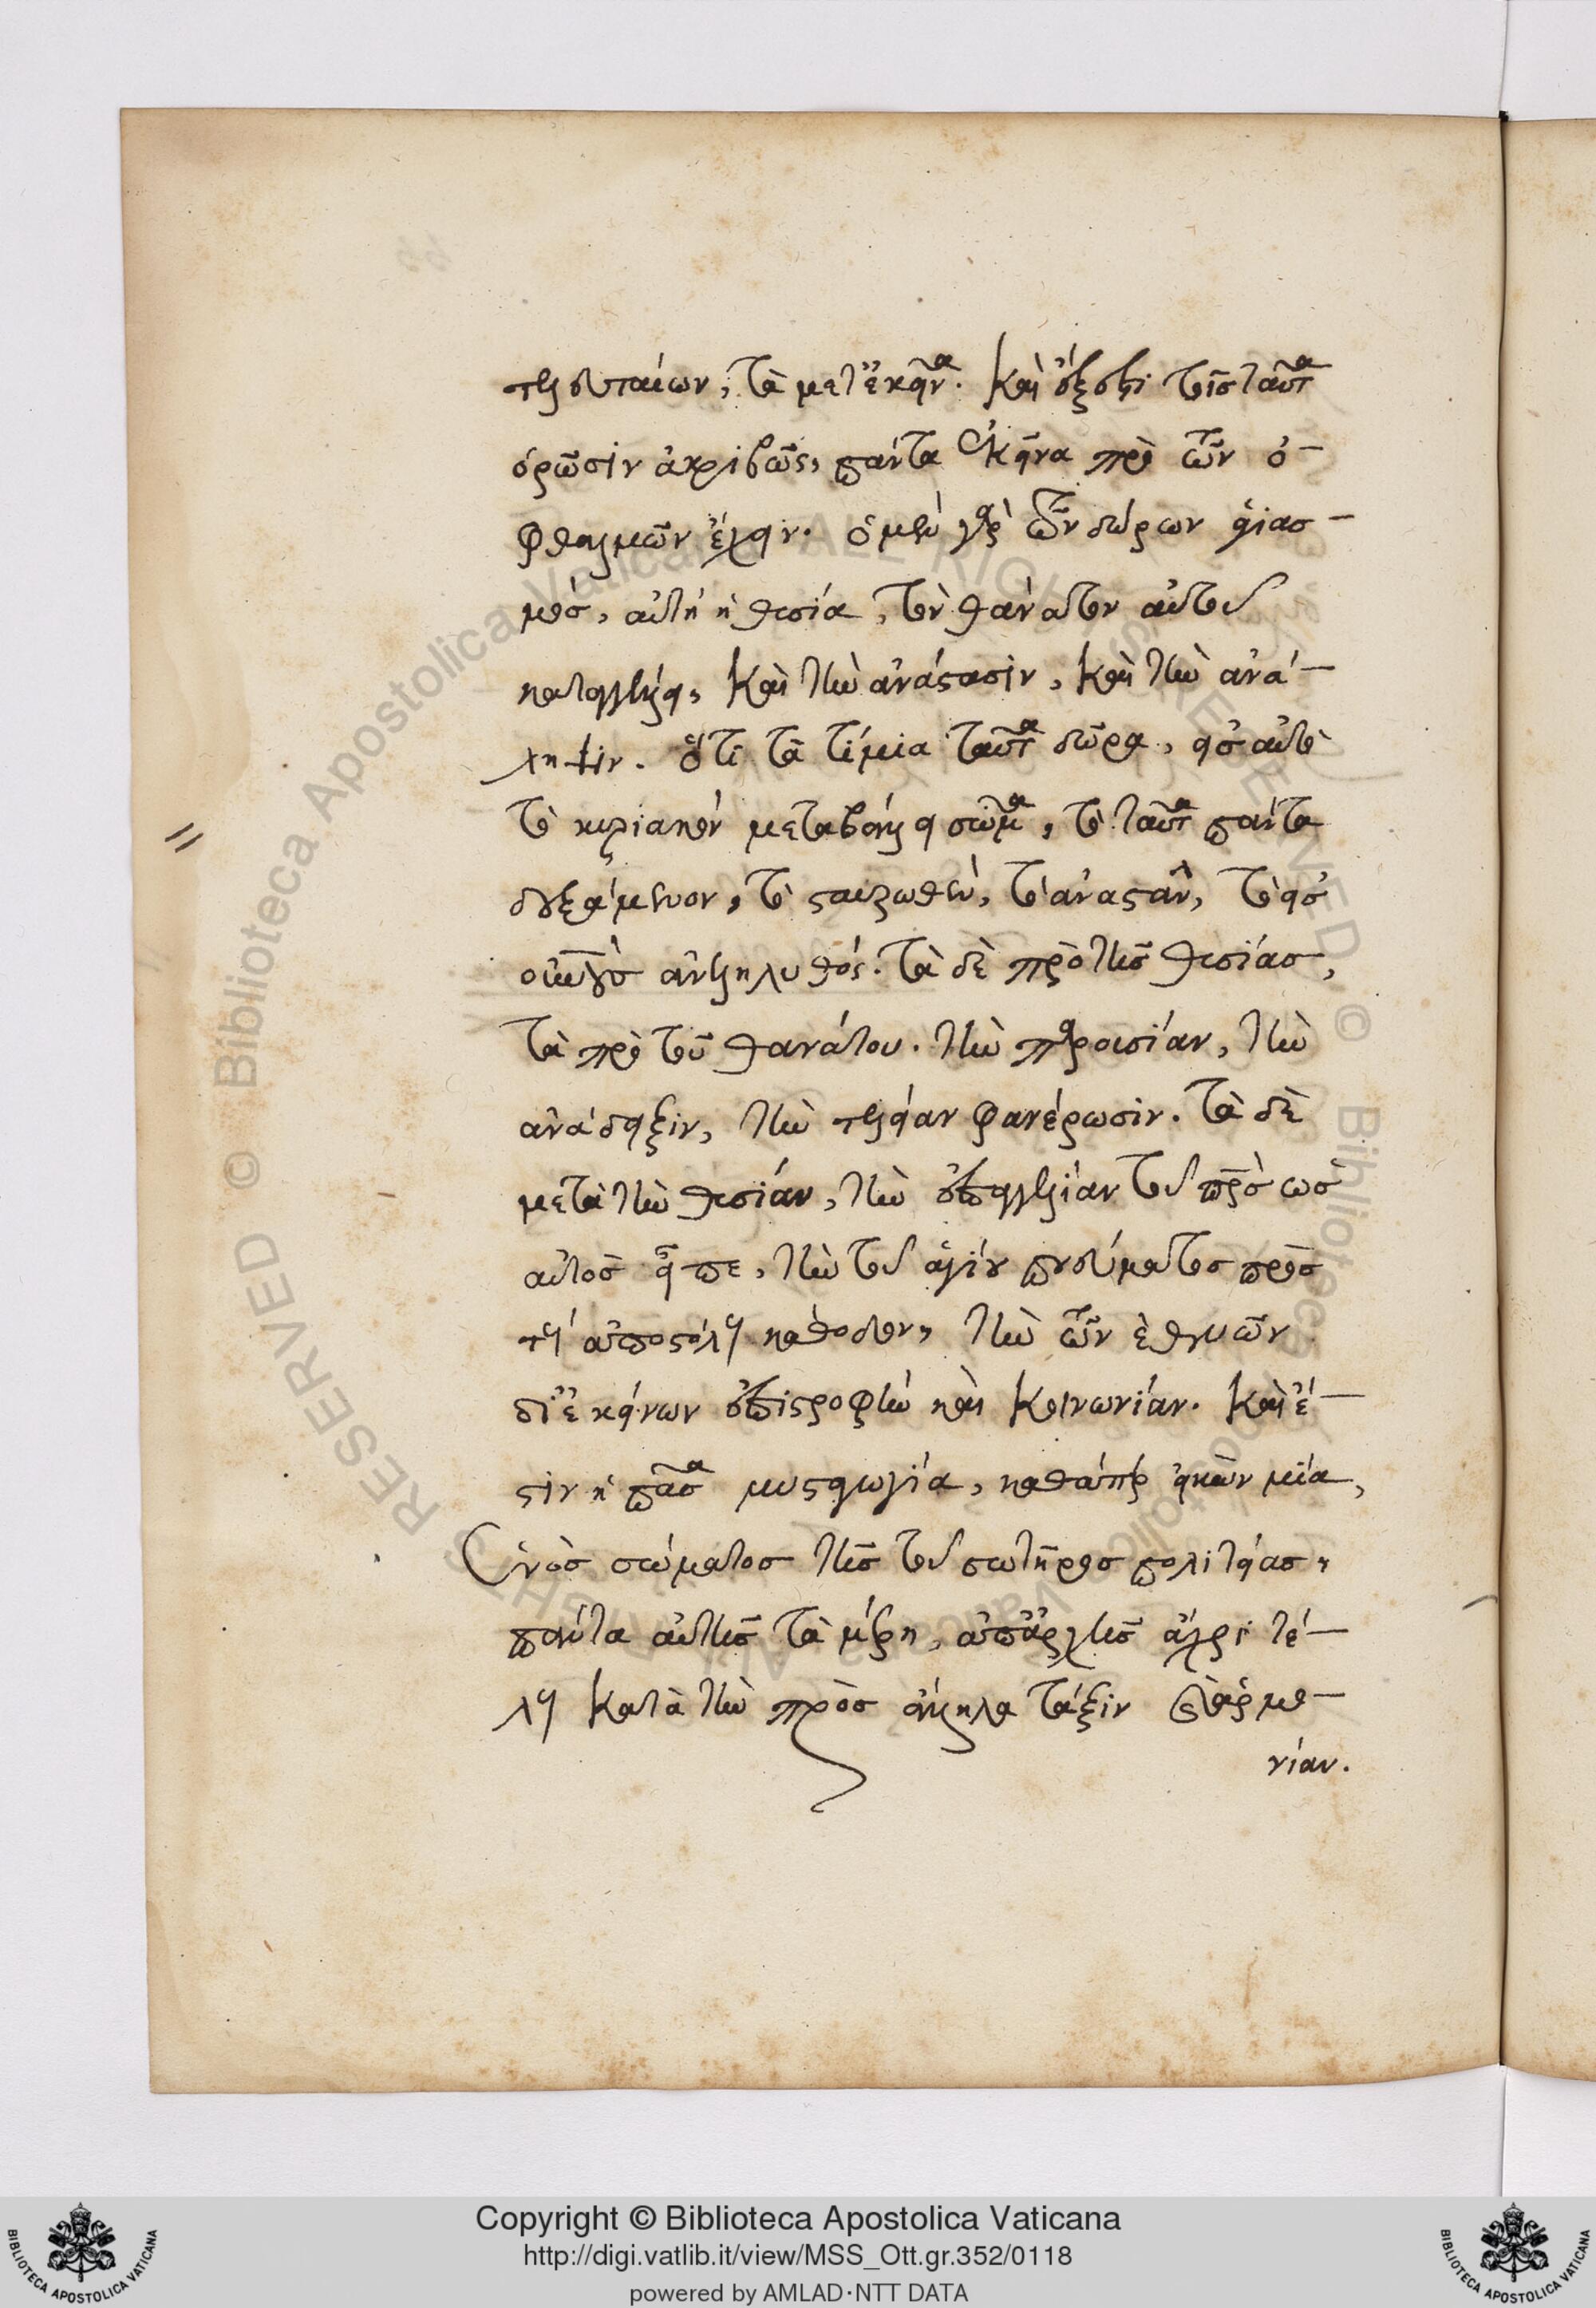 τελευταίων, τὰ μετ' ἐκεῖνα. Καὶ ἔξεστι τοῖς ταῦτα
ὁρῶσιν ἀκριβῶς, πάντα ἐκεῖνα πρὸ τῶν ὀ-
φθαλμῶν ἔχειν. ὁ μὲν γὰρ τῶν δώρων ἁγιασ-
μός, αὐτὴ ἡ θυσία, τὸν θάνατον αὐτοῦ
καταγγέλλει, καὶ τὴν ἀνάστασιν, καὶ τὴν ἀνά-
ληψιν. ὅτι τὰ τίμια ταῦτα δῶρα, εἰς αὐτὸ
τὸ κυριακὸν μεταβάλλει σῶμα, τὸ ταῦτα πάντα
δεξάμενον, τὸ σταυρωθέν, τὸ ἀναστάν, τὸ εἰς
οὐρανοὺς ἀνεληλυθός. τὰ δὲ πρὸ τῆς θυσίας,
τὰ πρὸ τοῦ θανάτου. τὴν παρουσίαν, τὴν
ἀνάδειξιν, τὴν τελείαν φανέρωσιν. τὰ δὲ
μετὰ τὴν θυσίαν, τὴν ἐπαγγελίαν τοῦ πρς ὡς
αὐτὸς εἶπε, τὴν τοῦ ἁγίου πνεύματος πρὸς
τοὺς ἀποστόλους κάθοδον, τὴν τῶν ἐθνῶν
δι' ἐκείνων ἐπιστροφὴν καὶ κοινωνίαν. Καὶ ἔ-
στιν ἡ πᾶσα μυσταγωγία, καθάπερ εἰκὼν μία,
ἑνὸς σώματος τῆς τοῦ σωτῆρος πολιτείας,
πάντα αὐτῆς τὰ μέρη, ἀπ' ἀρχῆς ἄχρι τέ-
λους κατὰ τὴν πρὸς ἄλληλα τάξιν καὶ ἁρμο-
νίαν.
Copyright © Biblioteca Apostolica Vaticana
http://digi.vatlib.it/view/MSS_Ott.gr.352/0118
powered by AMLAD·NTT DATA